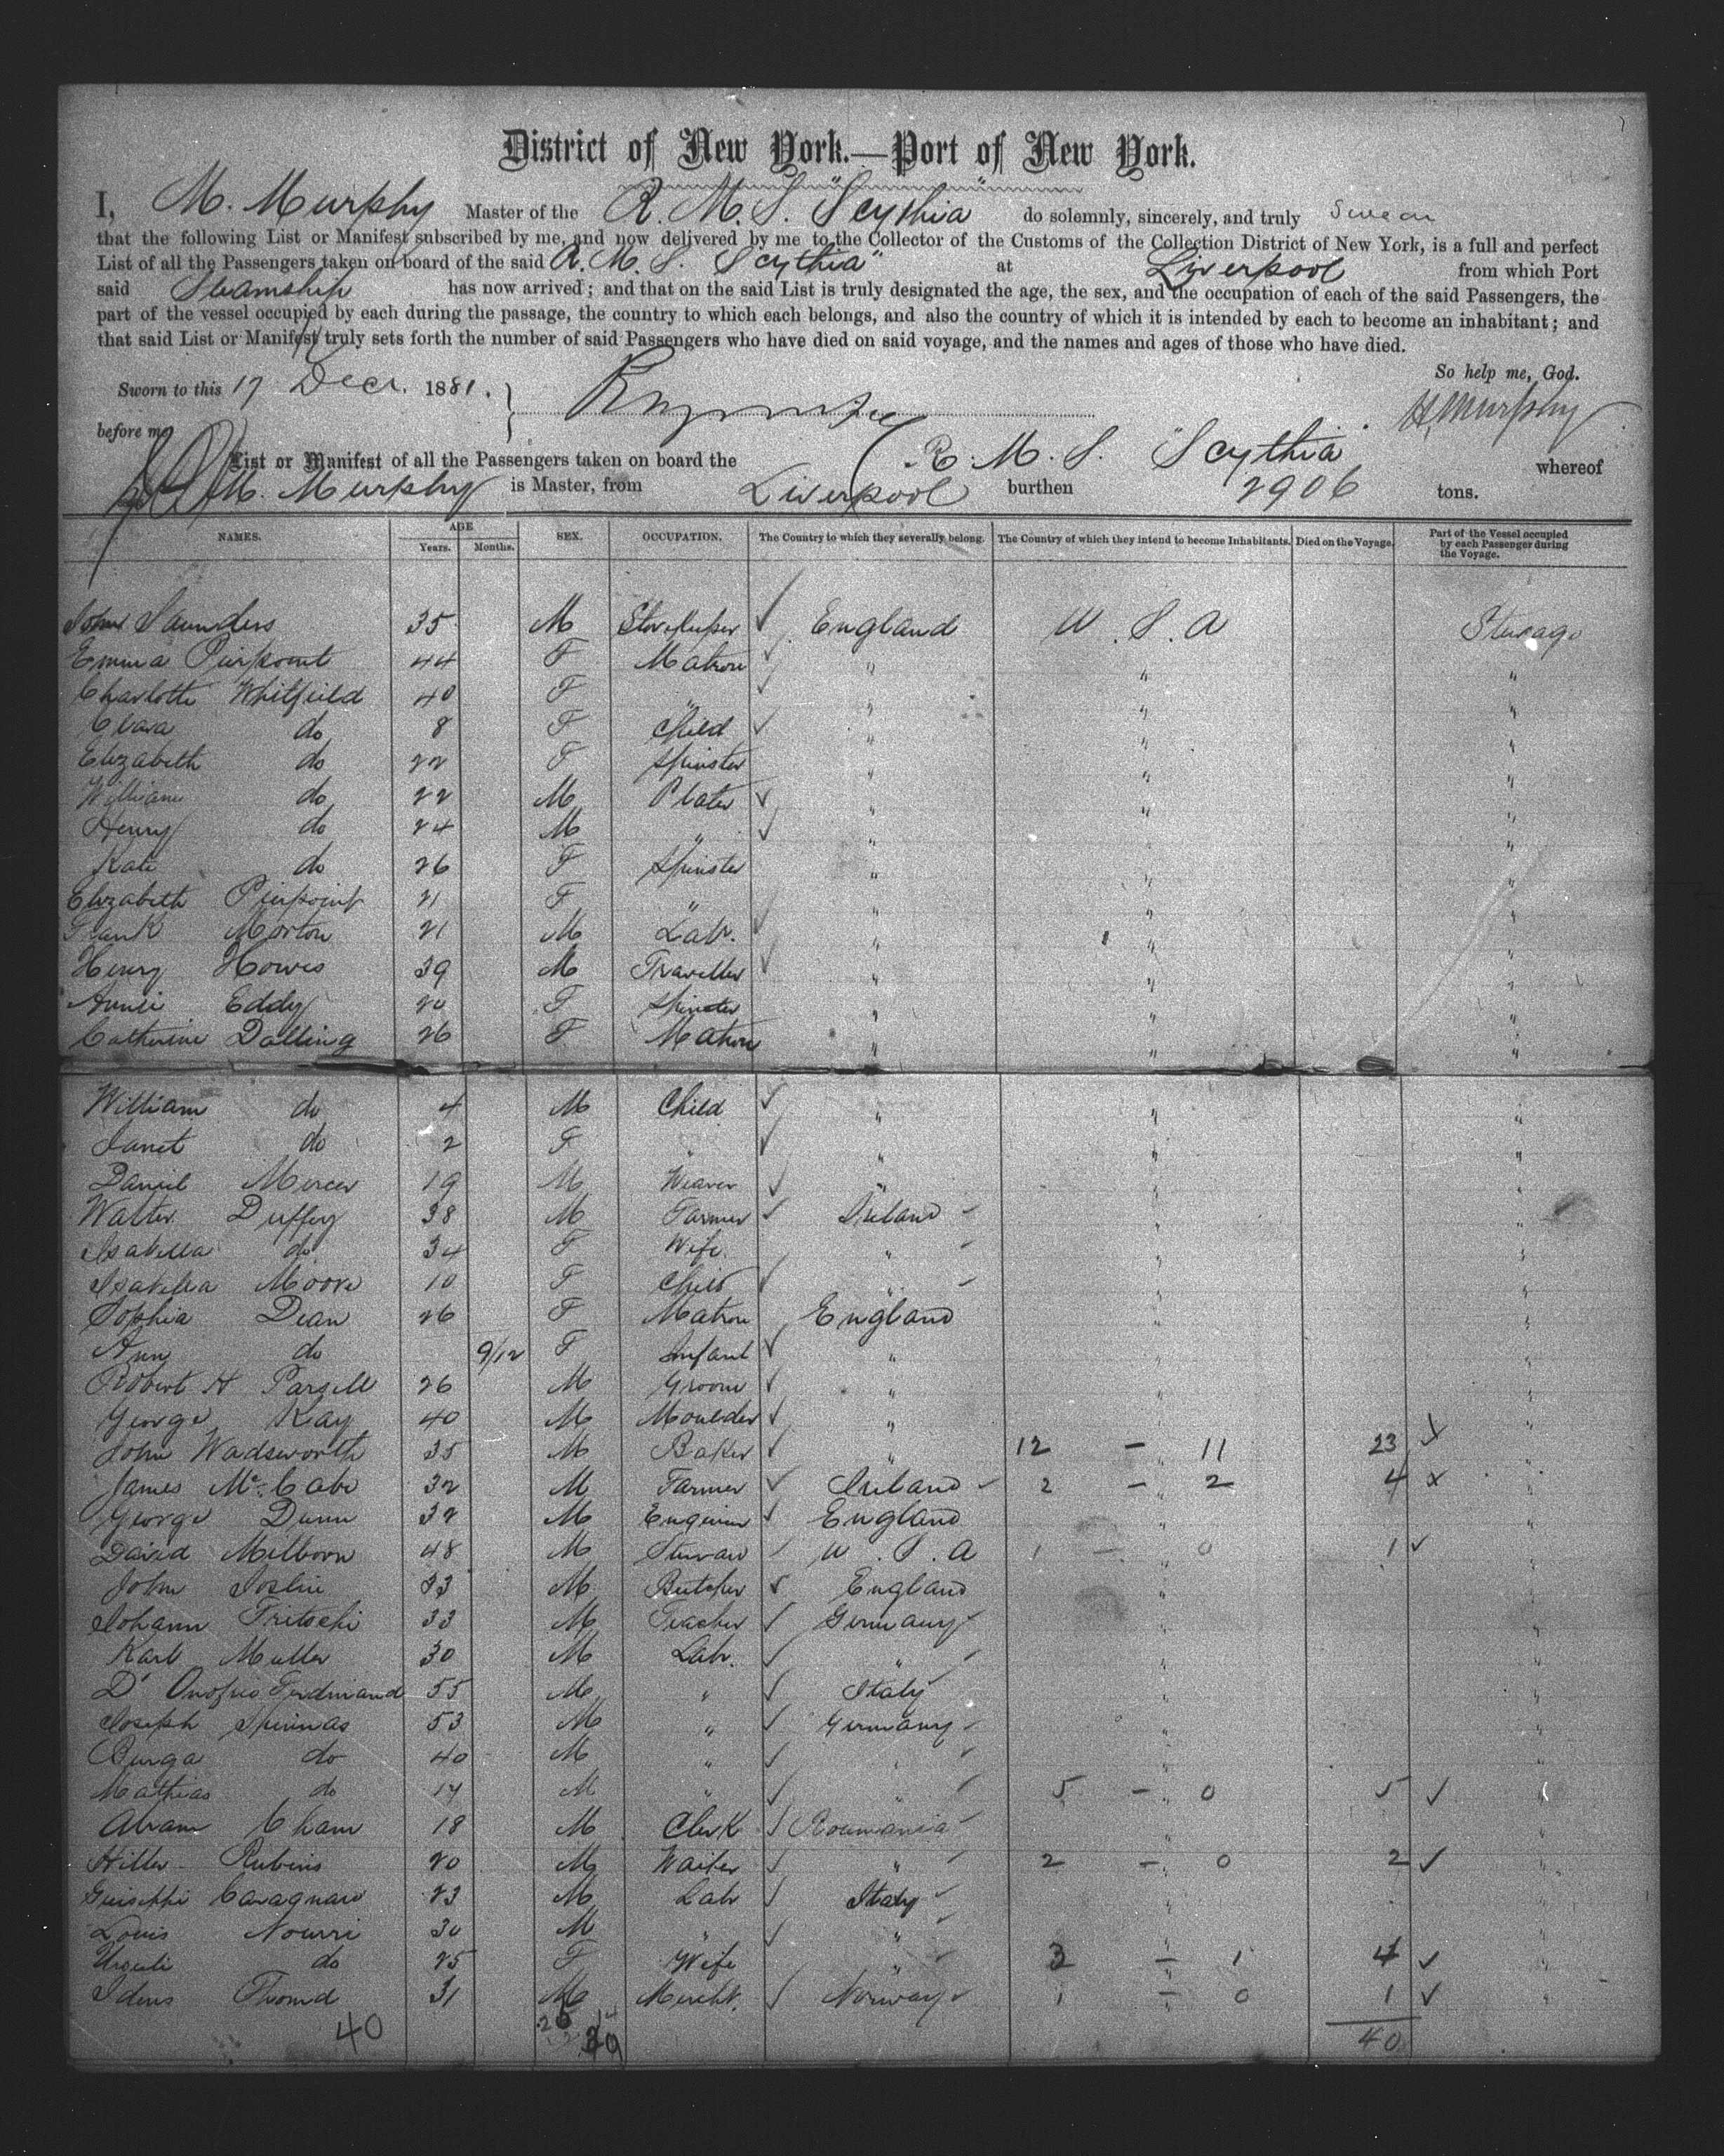 District of New York.—Port of New York.
I, M. Murphy Master of the R. M. S. "Scythia" do solemnly, sincerely, and truly Swear
that the following List or Manifest subscribed by me, and now delivered by me to the Collector of the Customs of the Collection District of New York, is a full and perfect
List of all the Passengers taken on board of the said R. M. S. Scythia" at Liverpool from which Port
said Steamship has now arrived; and that on the said List is truly designated the age, the sex, and the occupation of each of the said Passengers, the
part of the vessel occupied by each during the passage, the country to which each belongs, and also the country of which it is intended by each to become an inhabitant; and
that said List or Manifest truly sets forth the number of said Passengers who have died on said voyage, and the names and ages of those who have died.
So help me, God.
Sworn to this 17 Decr. 1881.
before me
Murphy
List or Manifest of all the Passengers taken on board the R. M. S. "Scythia whereof
M. Murphy is Master, from Liverpool burthen 2906 tons.
NAMES. AGE Years. Months. SEX. OCCUPATION. The Country to which they severally belong. The Country of which they intend to become Inhabitants. Died on the Voyage. Part of the Vessel occupied by each Passenger during the Voyage.
John Saunders 35 M Storekeeper England U.S.A Steerage
Emma Pierpoint 44 F Matron " " "
Charlotte Whitfield 40 F " " " "
Clara do 8 F Child " " "
Elizabeth do 22 F Spinster " " "
William do 22 M Plater " " "
Henry do 24 M " " " "
Kate do 26 F Spinster " " "
Elizabeth Pierpoint 21 F " " " "
Frank Morton 21 M Labr. " " "
Henry Howes 39 M Traveller " " "
Annie Eddy 20 F Spinster " " "
Catherine Dalling 26 F Matron " " "
William do 4 M Child " " "
Janet do 2 F " " " "
Daniel Mercer 19 M Weaver " "
Walter Duffy 38 M Farmer Ireland " "
Isabella do 34 F Wife " " "
Isabella Moore 10 F Child " " "
Sophia Dean 26 F Matron England " "
Ann do 9/12 F Infant " " "
Robert H Pargell 26 M Groom " " "
George Kay 40 M Moulder " " "
John Wadsworth 35 M Baker " 12 - 11 23
James McCabe 32 M Farmer Ireland 2 - 2 4 x
George Dunn 32 M Engineer England " "
David Milborn 48 M Steward U.S.A 1 - 0 1
John Joslin 33 M Butcher England " "
Johann Fritschi 33 M Teacher Germany " "
Karl Muller 30 M Labr. " " "
D' Onofrio Ferdinand 55 M " Italy " "
Joseph Spinnas 53 M " Germany " "
Burga do 40 M " " " "
Mathias do 17 M " " 5 - 0 5
Abram Cham 18 M Clerk Roumania " "
Hiller Rubins 20 M Waiter " 2 - 0 2
Guiseppi Cavagnaro 23 M Labr Italy " "
Louis Nourri 30 M " " " "
do 25 F Wife " 3 - 1 4
Thomd 31 M Mercht. Norway 1 - 0 1
40 40